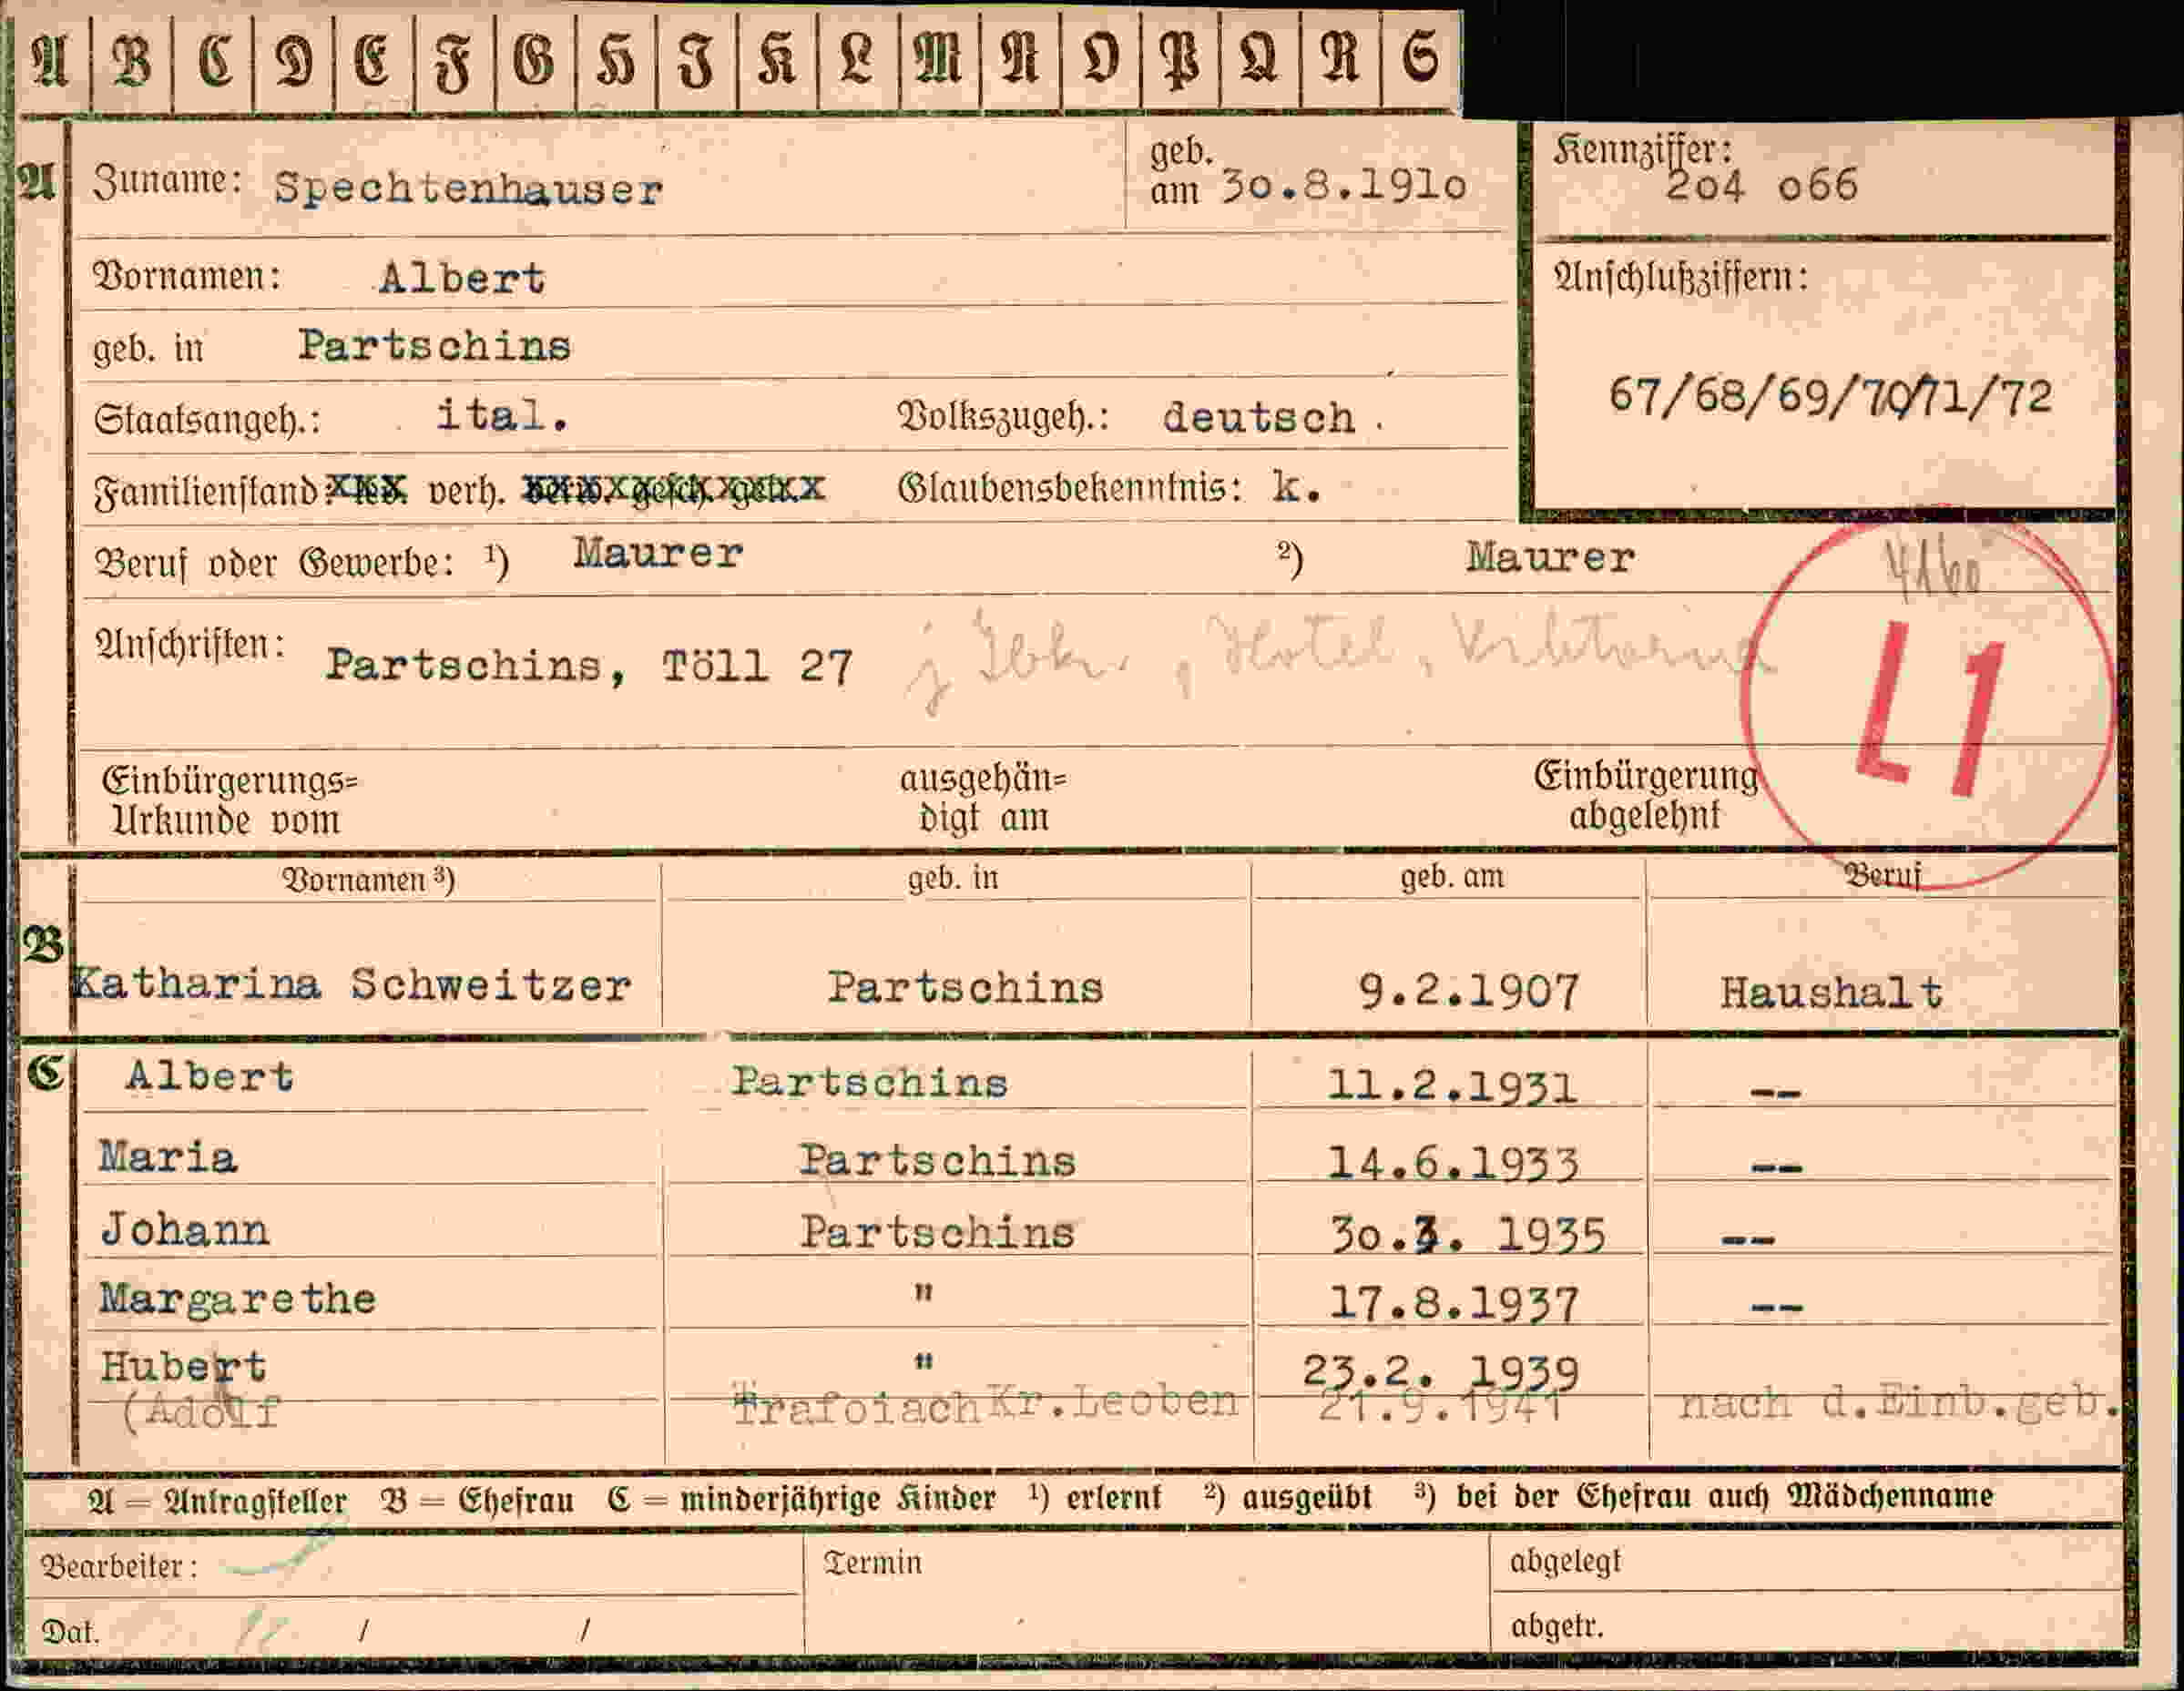 A B C D E F G H J K L M N O P Q R S
A Zuname: Spechtenhauser geb. am 3o.8.191o
Kennziffer: 2o4 o66
Vornamen: Albert
Anschlußziffern:
geb. in Partschins
67/68/69/70/71/72
Staatsangeh.: ital. Volkszugeh.: deutsch .
Familienstand: verh. Glaubensbekenntnis: k.
Beruf oder Gewerbe: 1) Maurer 2) Maurer
4160
Anschriften: Partschins, Töll 27 j Ibk. , Hotel, Viktoria
L1
Einbürgerungs= ausgehän= Einbürgerung
Urkunde vom digt am abgelehnt
Vornamen 3) geb. in geb. am Beruf
B Katharina Schweitzer Partschins 9.2.1907 Haushalt
C Albert Partschins 11.2.1931 --
Maria Partschins 14.6.1933 --
Johann Partschins 3o.3. 1935 --
Margarethe " 17.8.1937 --
Hubert " 23.2. 1939
(Adolf Trafoiach Kr.Leoben 21.9.1941 nach d.Einb.geb.
A = Antragsteller B = Ehefrau C = minderjährige Kinder 1) erlernt 2) ausgeübt 3) bei der Ehefrau auch Mädchenname
Bearbeiter: Termin abgelegt
Dat. / / abgetr.